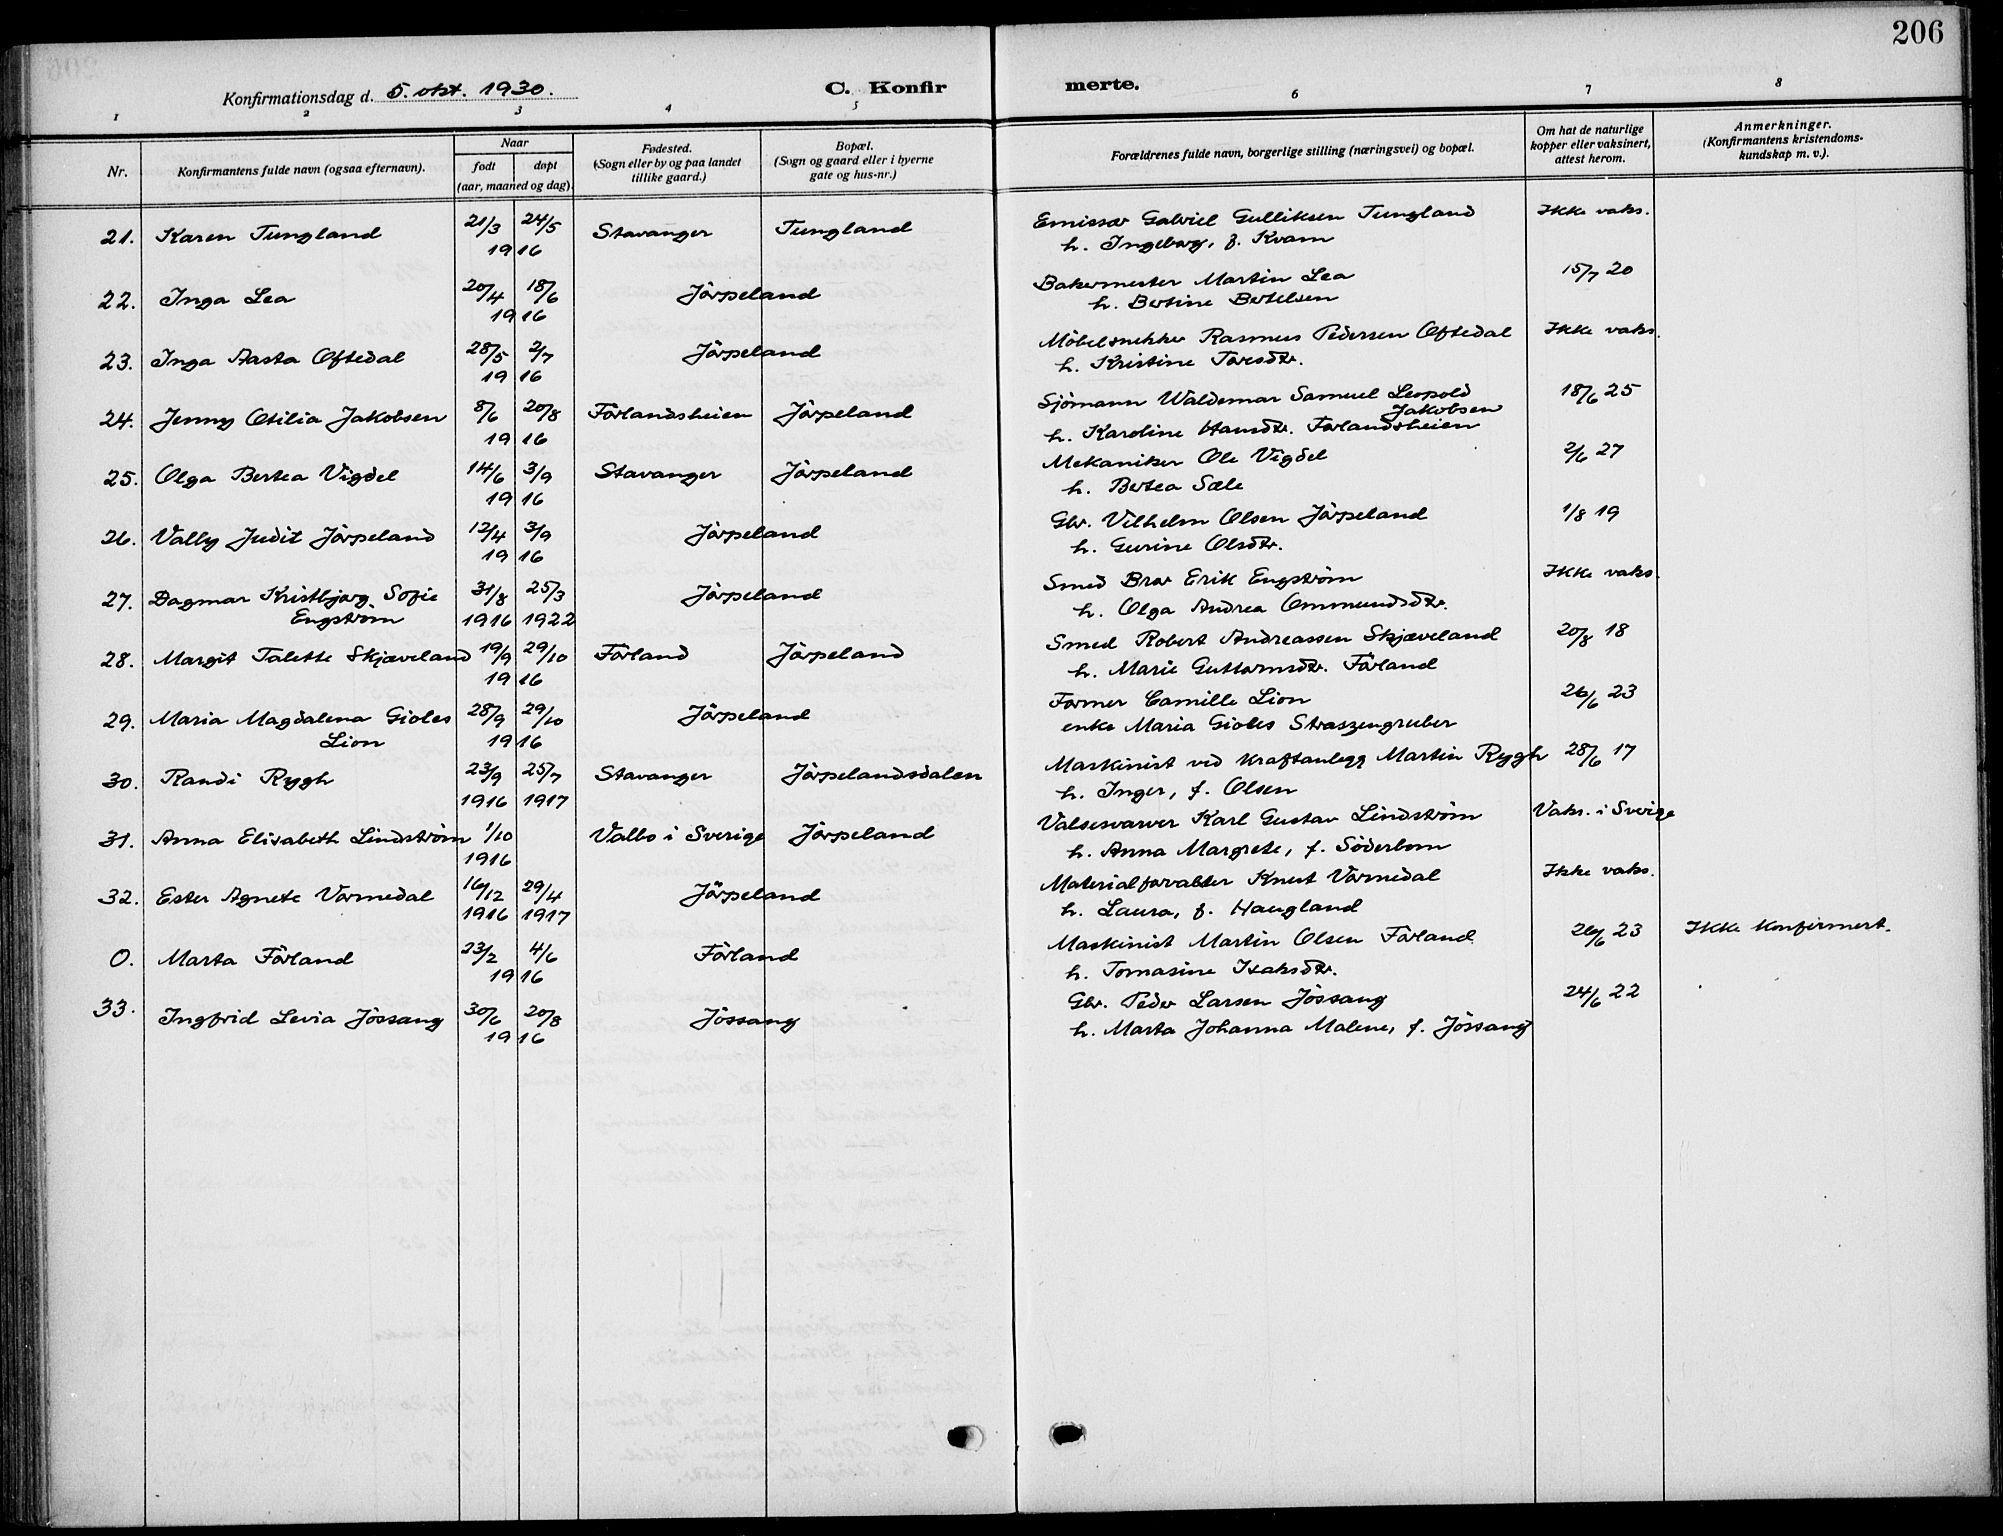 206
Konfirmationsdag d. 5. okt. 1930. C. Konfir merte.
1 2 3 4 5 6 7 8
Nr. Konfirmantens fulde navn (ogsaa efternavn). Naar født døpt (aar, maaned og dag). Fødested. (Sogn eller by og paa landet tillike gaard.) Bopæl. (Sogn og gaard eller i byerne gate og hus-nr.) Forældrenes fulde navn, borgerlige stilling (næringsvei) og bopæl. Om hat de naturlige kopper eller vaksinert, attest herom. Anmerkninger. (Konfirmantens kristendoms-kundskap m. v.).
21. Karen Tungland 21/3 24/5 Stavanger Tungland Emissær Gabriel Gulliksen Tungland Ikke vaks.
1916 h. Ingeborg, f. Kvam
22. Inga Lea 20/4 18/6 Jörpeland Bakermester Martin Lea 15/7 20
1916 h. Bertine Bertelsen
23. Inga Aasta Oftedal 28/5 2/7 Jörpeland Möbelsnekker Rasmus Pedersen Oftedal Ikke vaks.
1916 h. Kristine Toresdtr.
24. Jenny Otilia Jakobsen 8/6 20/8 Förlandsheien Jörpeland Sjömann Waldemar Samuel Leopold Jakobsen 18/6 25
1916 h. Karoline Hansdtr. Förlandsheien
25. Olga Bertea Vigdel 14/6 3/9 Stavanger Jörpeland Mekaniker Ole Vigdel 2/6 27
1916 h. Bertea Sæle
26. Vally Judit Jörpeland 12/4 3/9 Jörpeland Gbr. Vilhelm Olsen Jörpeland 1/8 19
1916 h. Gurine Olsdtr.
27. Dagmar Kristbjørg Sofie 31/8 25/3 Jörpeland Smed Bror Erik Engström Ikke vaks.
Engström 1916 1922 h. Olga Andrea Ommundsdtr.
28. Margit Talette Skjæveland 19/9 29/10 Förland Jörpeland Smed Robert Andreassen Skjæveland 20/8 18
1916 h. Marie Guttormsdtr. Förland
29. Maria Magdalena Gioles 28/9 29/10 Jörpeland Former Camille Lion 26/6 23
Lion 1916 enke Maria Gioles Straszengruber
30. Randi Rygh 23/9 25/7 Stavanger Jörpelandsdalen Maskinist ved kraftanlegg Martin Rygh 28/6 17
1916 1917 h. Inger, f. Olsen
31. Anna Elisabeth Lindström 1/10 Valbo i Sverige Jörpeland Valsesvarver Karl Gustav Lindström Vaks. i Sverige
1916 h. Anna Margrete, f. Söderbom
32. Ester Agnete Vormedal 16/12 29/4 Jörpeland Materialforvalter Knut Vormedal Ikke vaks.
1916 1917 h. Laura, f. Haugland
0. Marta Förland 23/2 4/6 Förland Maskinist Martin Olsen Förland 26/6 23 Ikke konfirmert.
1916 h. Tomasine Isaksdtr.
33. Ingfrid Levia Jössang 30/6 20/8 Jössang Gbr. Peder Larsen Jössang 24/6 22
1916 h. Marta Johanna Malene, f. Jössang